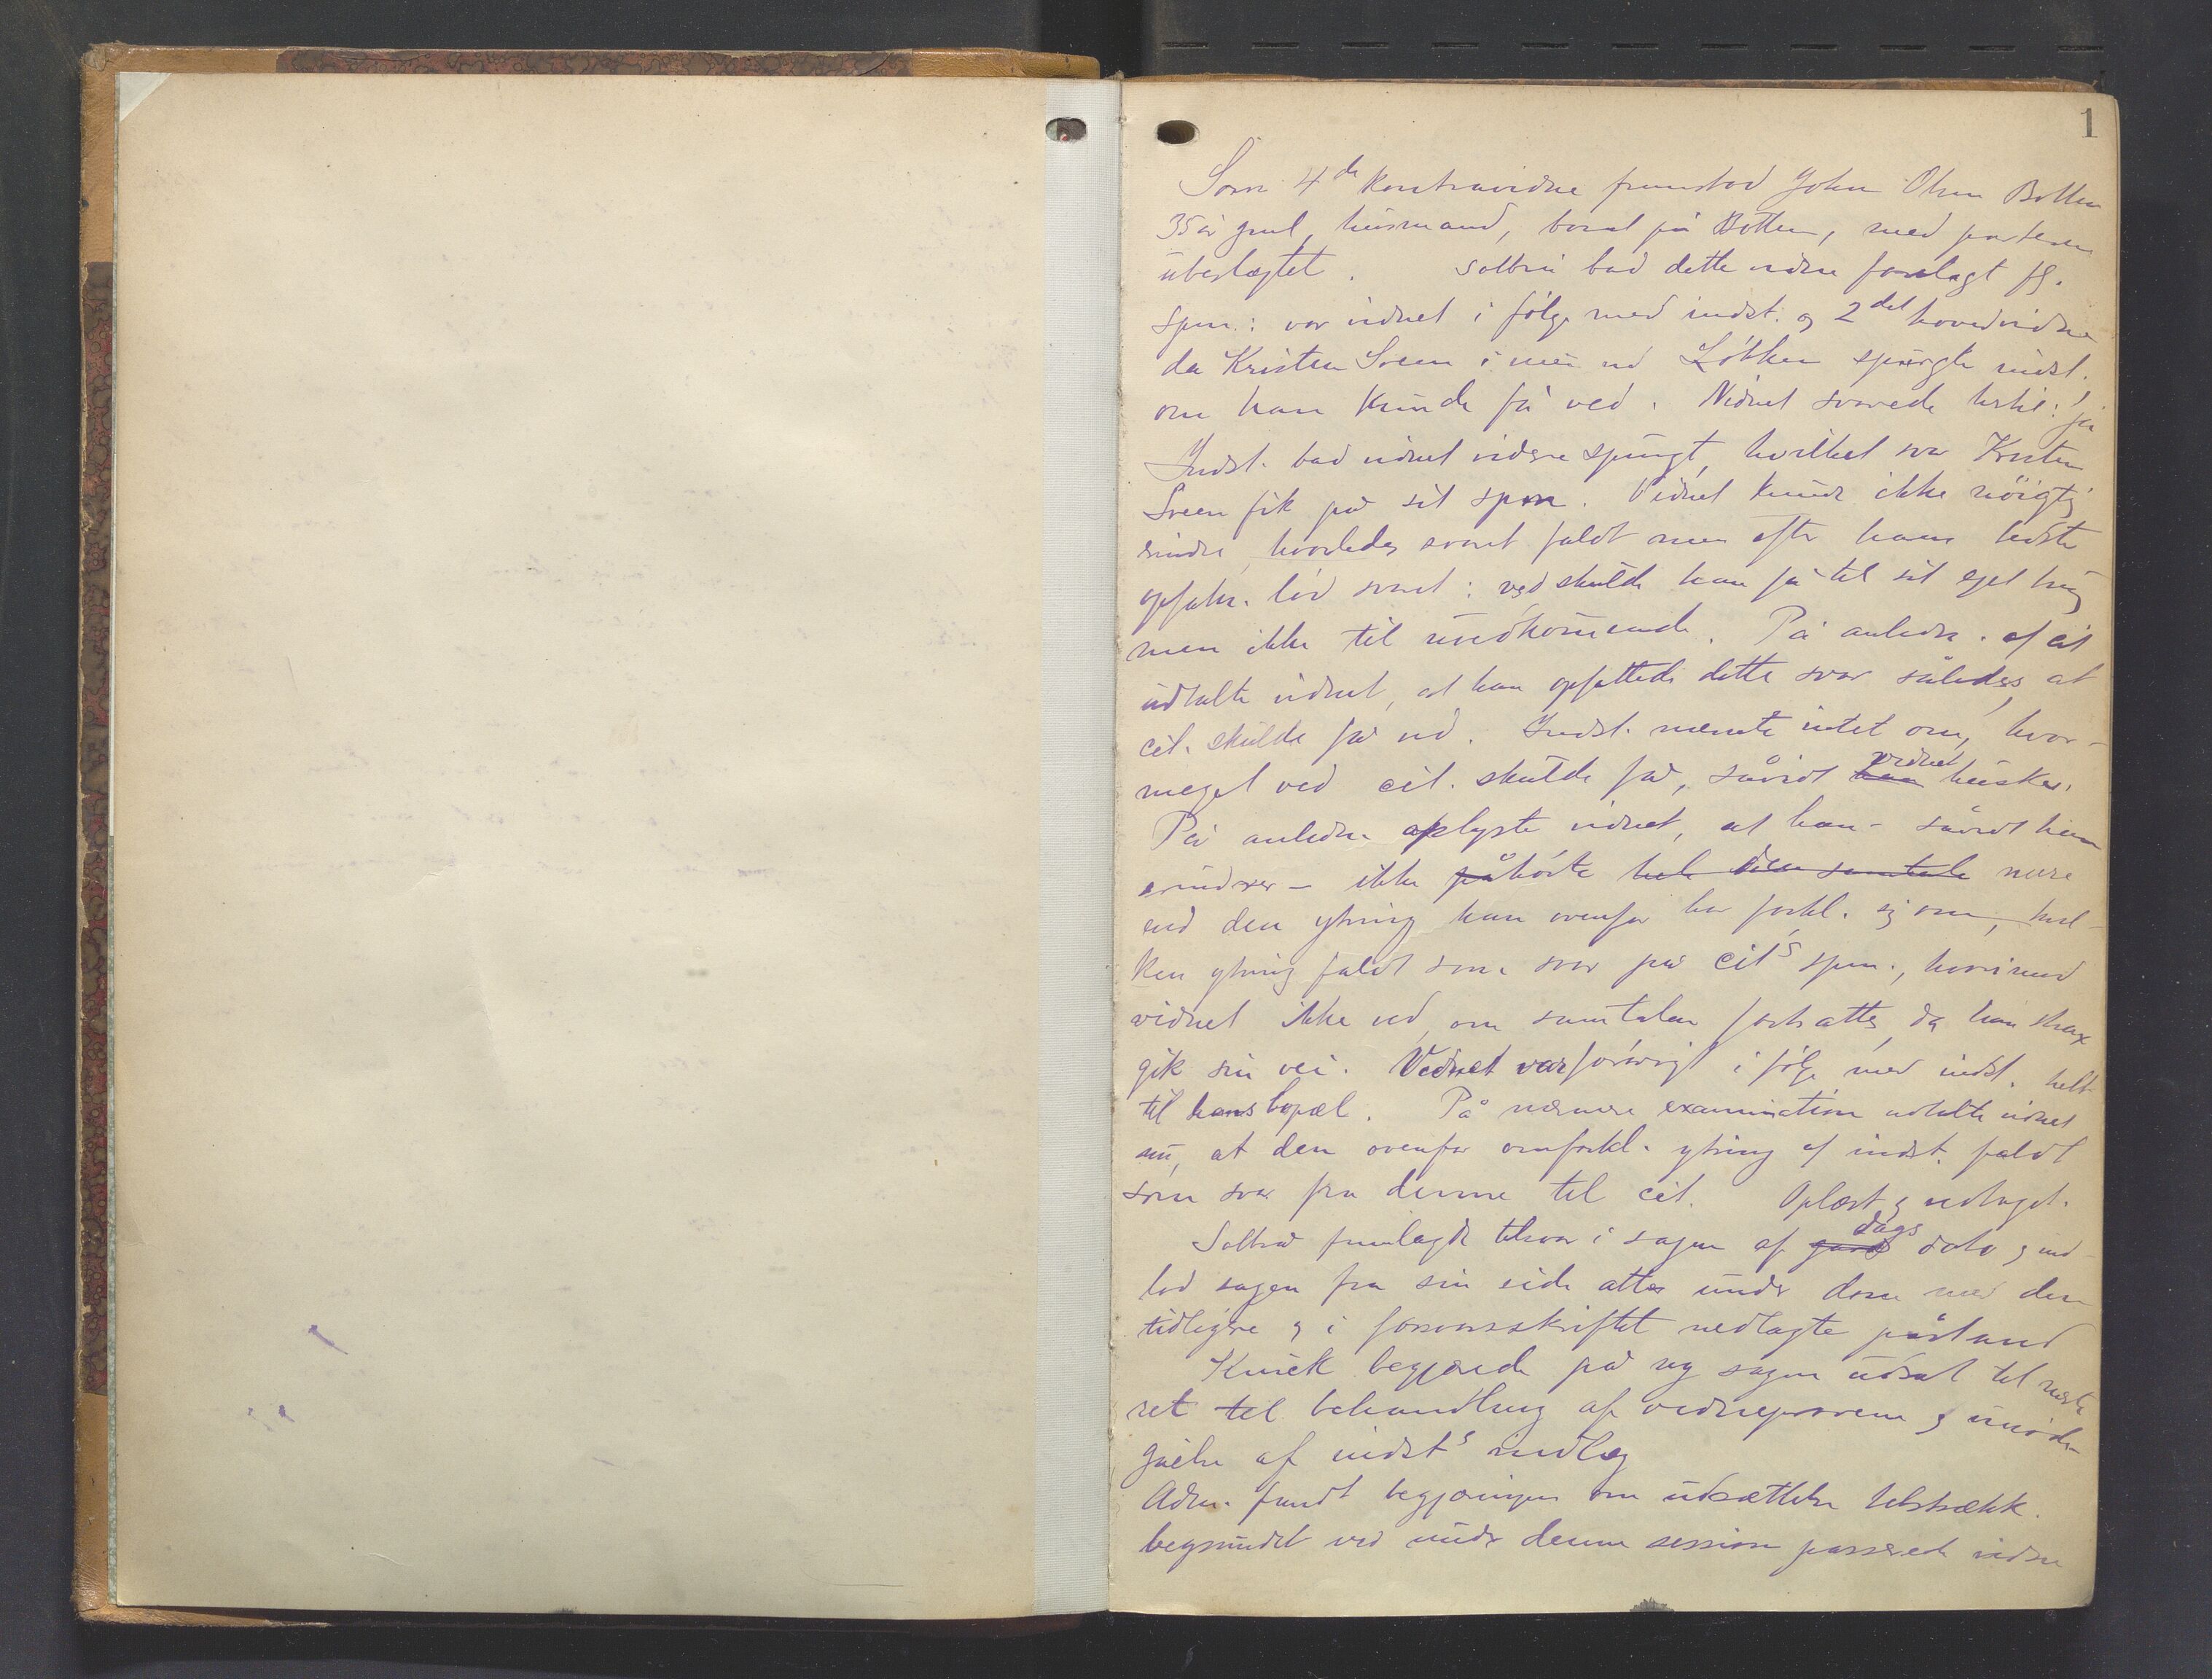 1
Som 4de kontravidne fremstod John Olsen Botten
35 år gml, husmand, boset på Botten, med parterne
ubeslægtet. Solbrå bad dette vidne forelagt flg.
spm.: var vidnet i følge med indst. og 2det hovedvidne
da Kristen Sveen i nu ved Løkken spurgte indst.
om han kunde få ved. Vidnet svarede hertil: ja
Indst. bad vidnet videre spurgt, hvilket svar Kristen
Sveen fik på sit spm. Vidnet kunde ikke nöigtig
erindre, hvorledes svaret faldt men efter hans bedste
opfatn. lød svaret: ved skulde han få til sit eget brug
men ikke til uvedkommende. På anledn. af cit
udtalte vidnet, at han opfattede dette svar således, at
cit. skulde få ved. Indst. nævnte intet om, hvor-
meget ved cit. skulde få, såvidt han vidnet husker.
På anledn. oplyste vidnet, at han - såvidt han
erindrer - ikke påhörte hele den samtale mere
end den ytring han ovenfor har forkl. sig om, hvil-
ken ytring faldt som svar på cits spm., hvorimod
vidnet ikke ved, om samtalen fortsattes, da han strax
gik sin vei. Vidnet var forövrigt i følge med indst. helt
til hans bopæl. På nærmere examination udtalte vidnet
nu, at den ovenfor omforkl. ytring af indst. faldt
som svar fra denne til cit. Oplæst & vedtaget.
Solbrå fremlagde tilsvar i sagen af dags dato & ind-
lod sagen fra sin side atter under dom med den
tidligere & i forsvarsskriftet nedlagte påstand
begjærede på ny sagen udsat til næste
ret til behandling af vidneprovene & imöde-
gåelse af indsts indlæg
Adm. fandt begjæringen om udsættelse tilstrækk.
begrundet ved under denne session passerede vidne